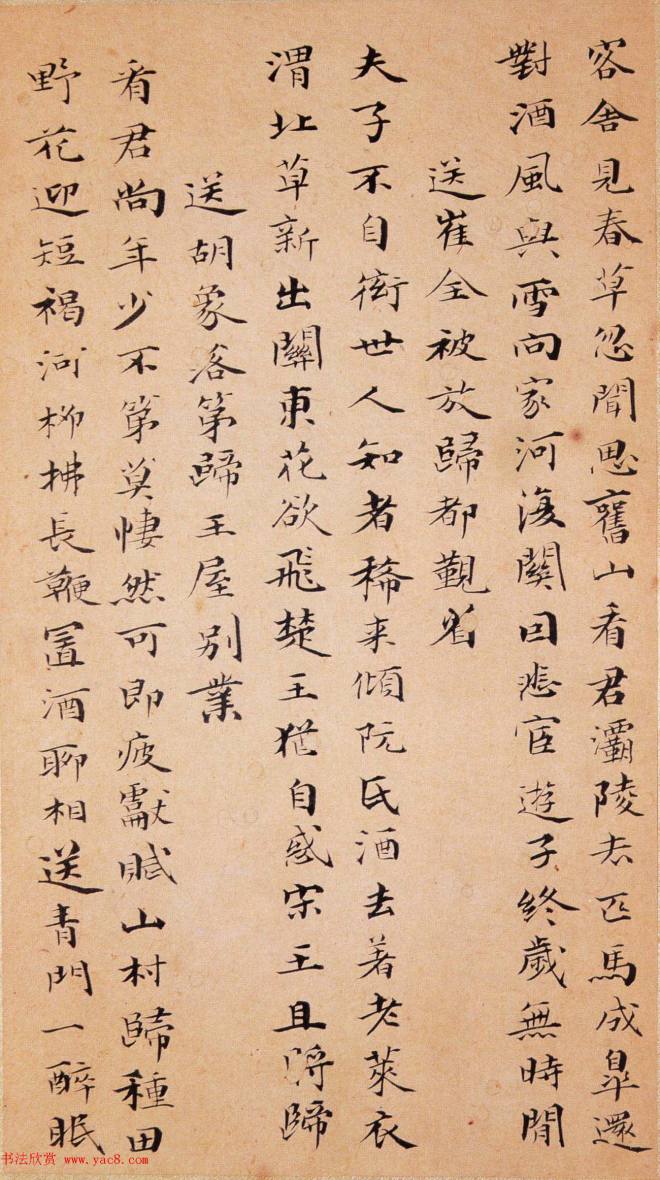 客舍見春草忽聞思舊山看君灞陵去匹馬成皋還
對酒風與雪向家河復關因悲宦遊子終歲無時閒
送崔全被放歸都覲省
夫子不自衒世人知者稀来傾阮氏酒去著老萊衣
渭北草新出關東花欲飛楚王猶自惑宋王且將歸
送胡象落第歸王屋別業
看君尚年少不第莫悽然可即疲獻賦山村歸種田
野花迎短褐河柳拂長鞭置酒聊相送青門一醉眠
书法欣赏 www.yac8.com